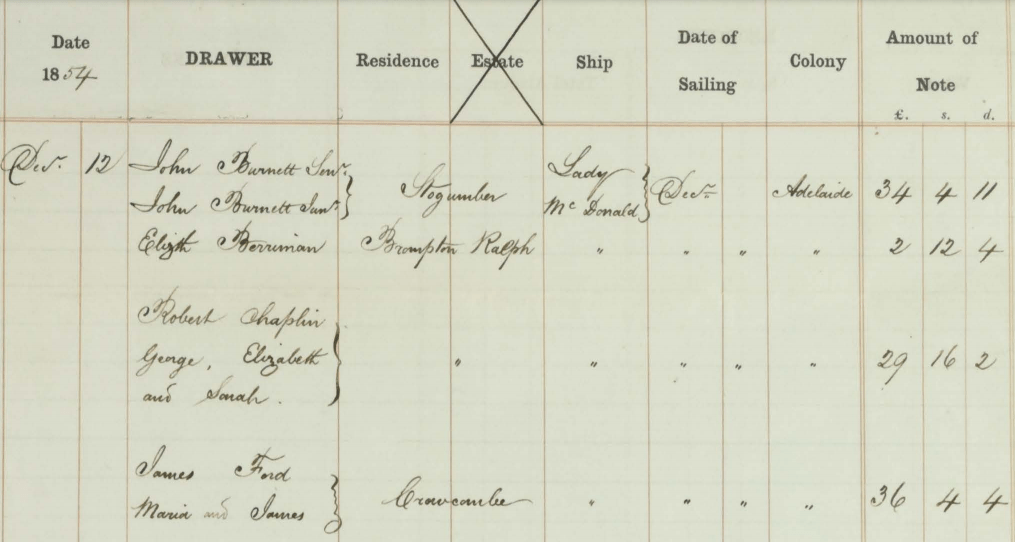 Date 1854 DRAWER Residence Estate Ship Date of Sailing Colony Amount of Note
£. s. d.
Decr. 12 John Burnett Senr. Stogumber Lady Mc Donald Decr. Adelaide 34 4 11
John Burnett Junr.
Elizth Berriman Brompton Ralph " " " " 2 12 4
Robert Chaplin
George, Elizabeth " " " " " 29 16 2
and Sarah.
James Ford
Maria and James Crowcombe " " " " 36 4 4